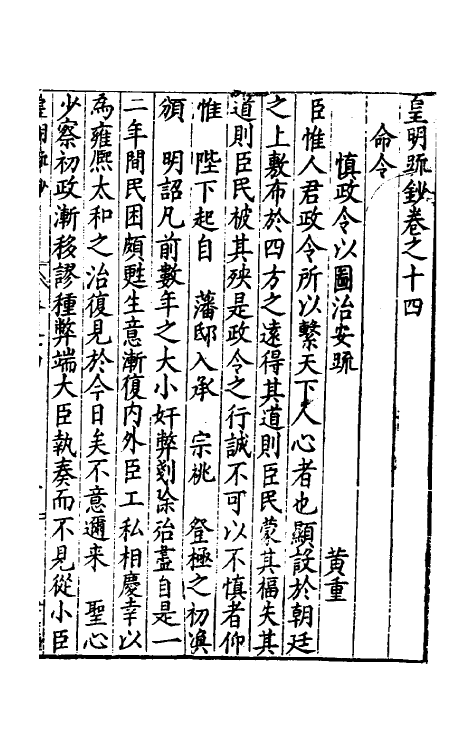 皇明疏鈔卷之十四
命令
慎政令以圖治安疏 黄重
臣惟人君政令所以繫天下人心者也顯設於朝廷
之上敷布於四方之遠得其道則臣民蒙其福失其
道則臣民被其殃是政令之行誠不可以不慎者仰
惟 陛下起自 藩邸入承 宗祧 登極之初渙
頒 明詔凡前數年之大小奸弊剗除殆盡自是一
二年間民困頗甦生意漸復内外臣工私相慶幸以
為雍熙太和之治復見於今日矣不意邇來 聖心
少察初政漸移謬種弊端大臣執奏而不見從小臣
皇明疏鈔